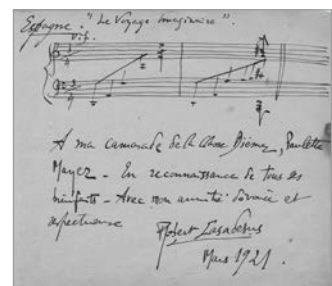 Espagne. "Le Voyage Imaginaire".
Vif.
A ma camarade de la classe Diémer, Paulette
Mayer - En reconnaissance de tous ses
bienfaits - Avec mon amitié dévouée et
respectueuse
Robert Casadesus
Mars 1921.